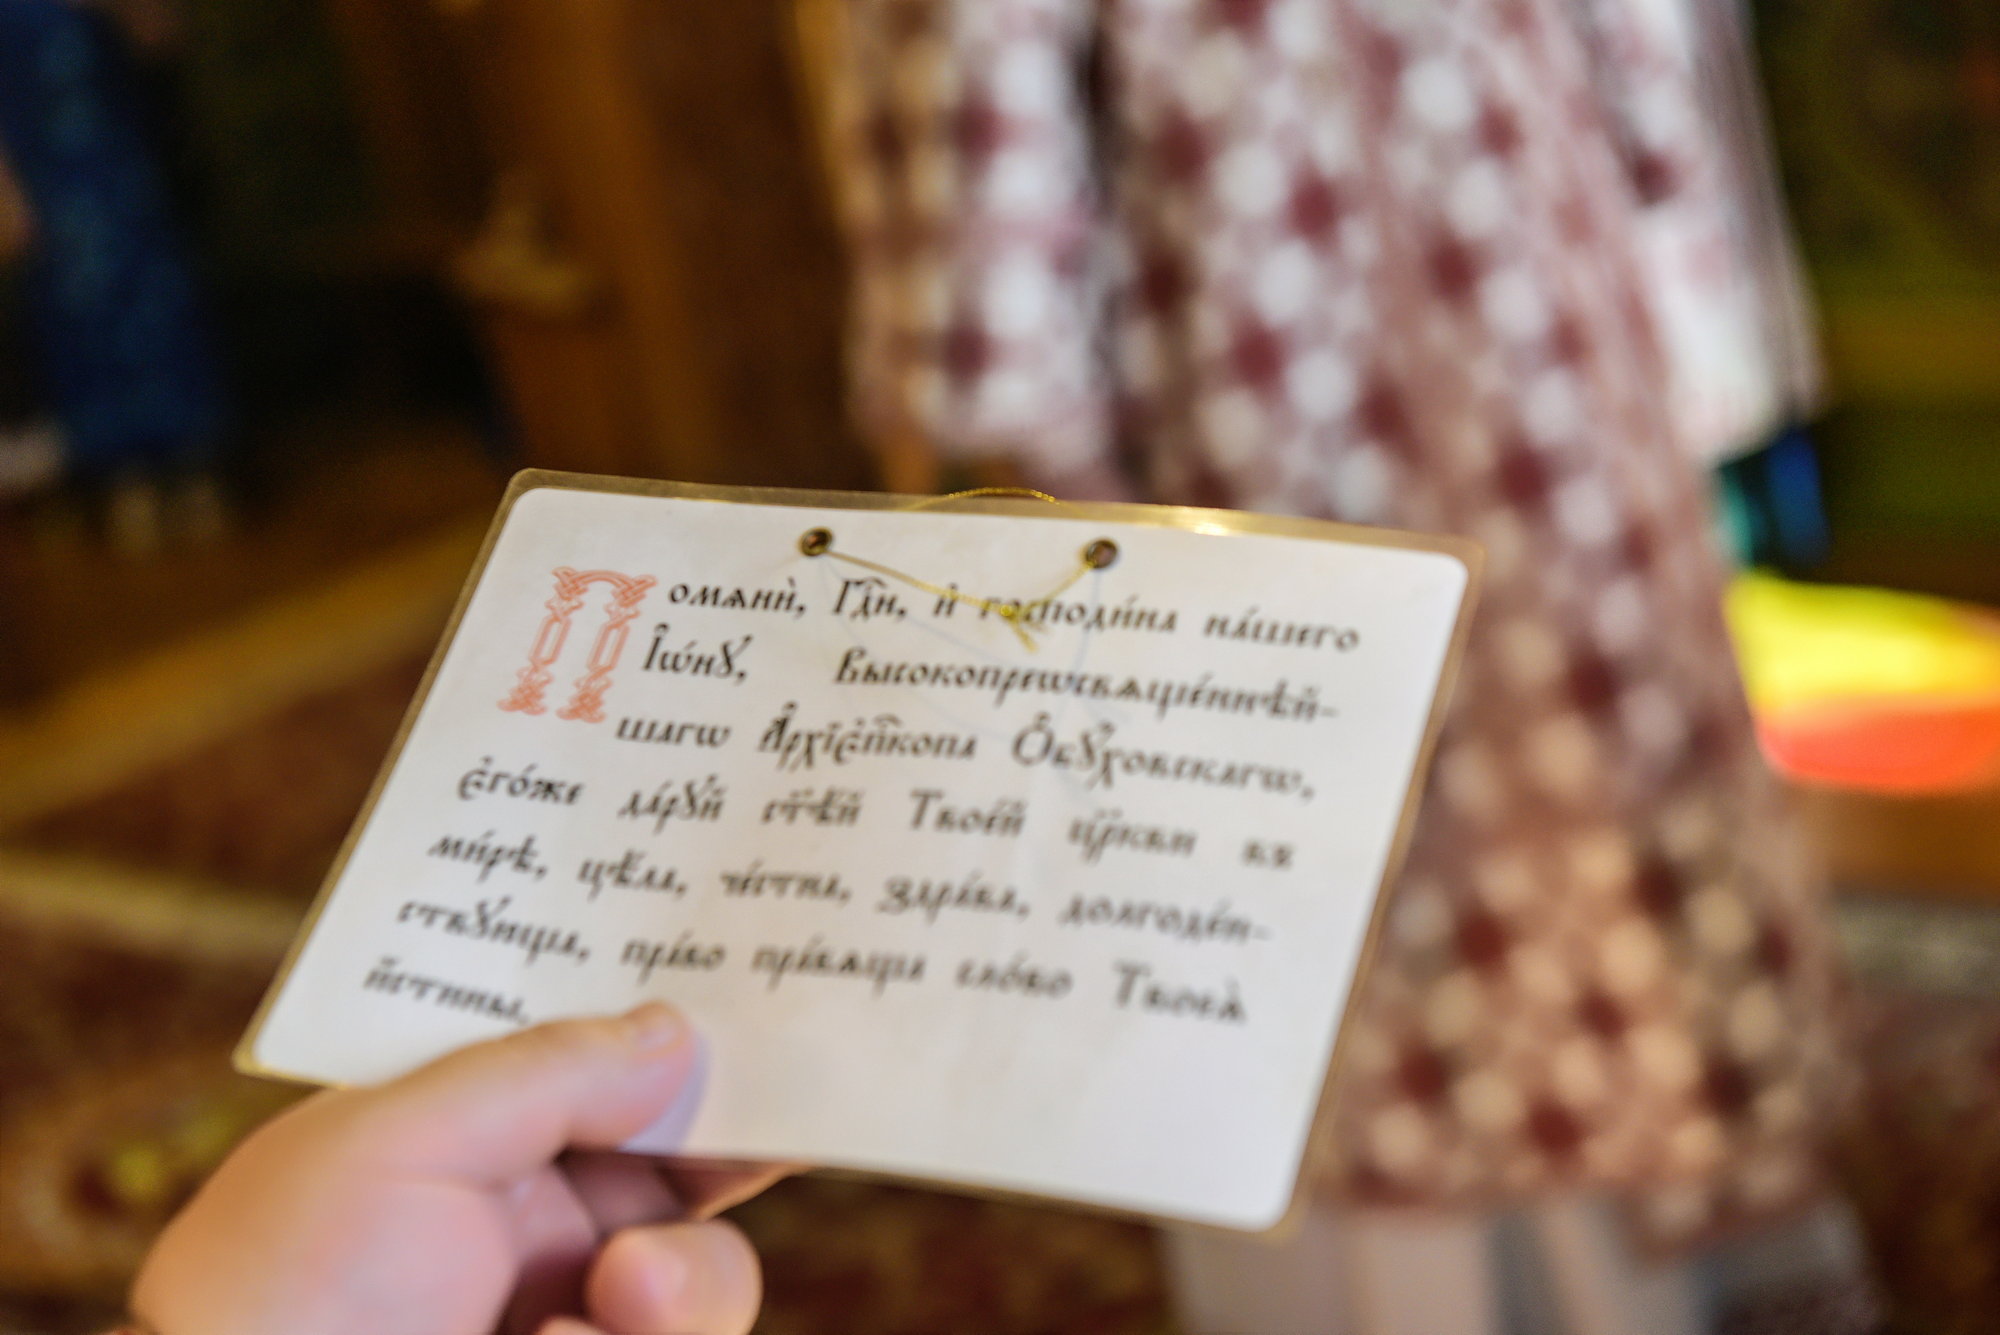 Помѧнѝ, Гдⷭ҇и, и҆ господи́на на́шего
І҆ѡ́нꙋ, Высокопреѡсвѧще́ннѣй-
шагѡ А҆рхїепⷭ҇копа Ѻ҆бꙋховскагѡ,
є҆го́же да́рꙋй ст҃ѣ́й Твое́й цр҃кви въ
ми́рѣ, цѣ́ла, че́стна, здра́ва, долгоде́н-
ствꙋюща, пра́во пра́вѧща сло́во Твоеѧ̀
и҆́стины.